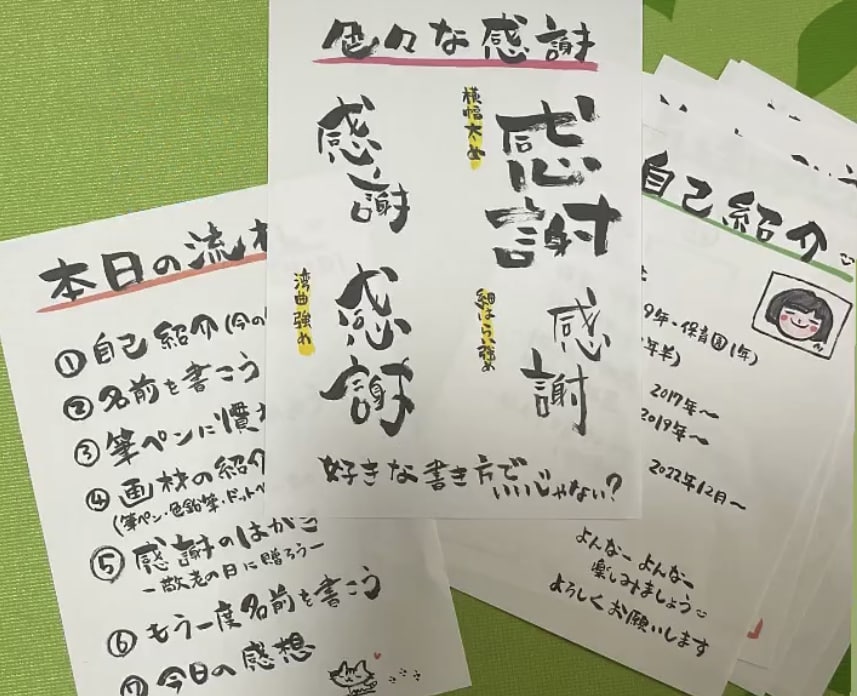 本日の流れ
① 自己紹介(今の
② 名前を書こう
③ 筆ペンに慣
④ 画材の紹介
(筆ペン・色鉛筆・ドットペ
⑤ 感謝のはがき
ー敬老の日に贈ろうー
⑥ もう一度名前を書こう
⑦ 今日の感想
色々な感謝
感謝
横幅太め
感謝
湾曲強め
感謝
細はらい強め
感謝
好きな書き方でいいじゃない?
自己紹介
9年〜保育園(1年)
年半)
2017年〜
2019年〜
2022年12月〜
よんなーよんなー
楽しみましょう
よろしくお願いします